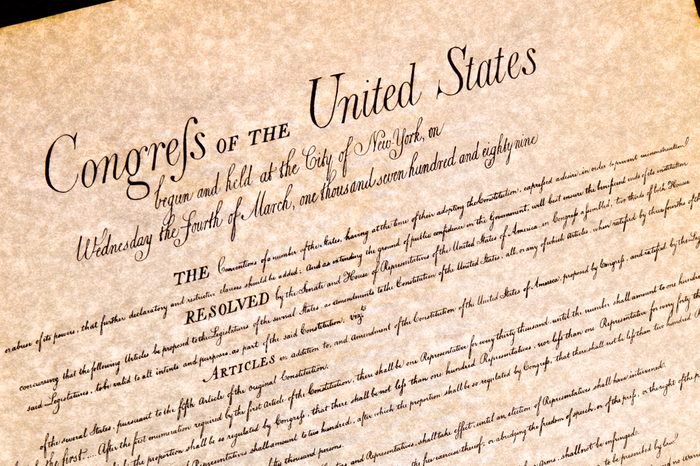 Congreſs OF THE United States
begun and held at the City of New-York, on
Wednesday the Fourth of March, one thousand seven hundred and eighty nine
THE Conventions of a number of the States, having at the time of their adopting the Constitution, expreſsed a desire, in order to prevent misconstruction
or abuse of its powers, that further declaratory and restrictive clauses should be added: And as extending the ground of public confidence in the Government, will best ensure the beneficent ends of its institution
RESOLVED by the Senate and House of Representatives of the United States of America, in Congreſs aſsembled, two thirds of both Houses
concurring that the following Articles be proposed to the Legislatures of the several States, as amendments to the Constitution of the United States, all, or any of which Articles, when ratified by three fourths of the
said Legislatures, to be valid to all intents and purposes, as part of the said Constitution; vizt
ARTICLES in addition to, and Amendment of the Constitution of the United States of America, proposed by Congreſs, and ratified by the Legis
of the several States, pursuant to the fifth Article of the original Constitution.
the first.... After the first enumeration required by the first Article of the Constitution, there shall be one Representative for every thirty thousand, until the number shall amount to one hundred
the proportion shall be so regulated by Congreſs, that there shall be not leſs than one hundred Representatives, nor leſs than one Representative for every forty
Representatives shall amount to two hundred, after which the proportion shall be so regulated by Congreſs, that there shall not be leſs than two hundred
thousand persons.
and Representatives, shall take effect, until an election of Representatives shall have intervened.
the free exercise thereof; or abridging the freedom of speech, or of the preſs, or the right of the
Arms, shall not be infringed.
to be prescribed by law